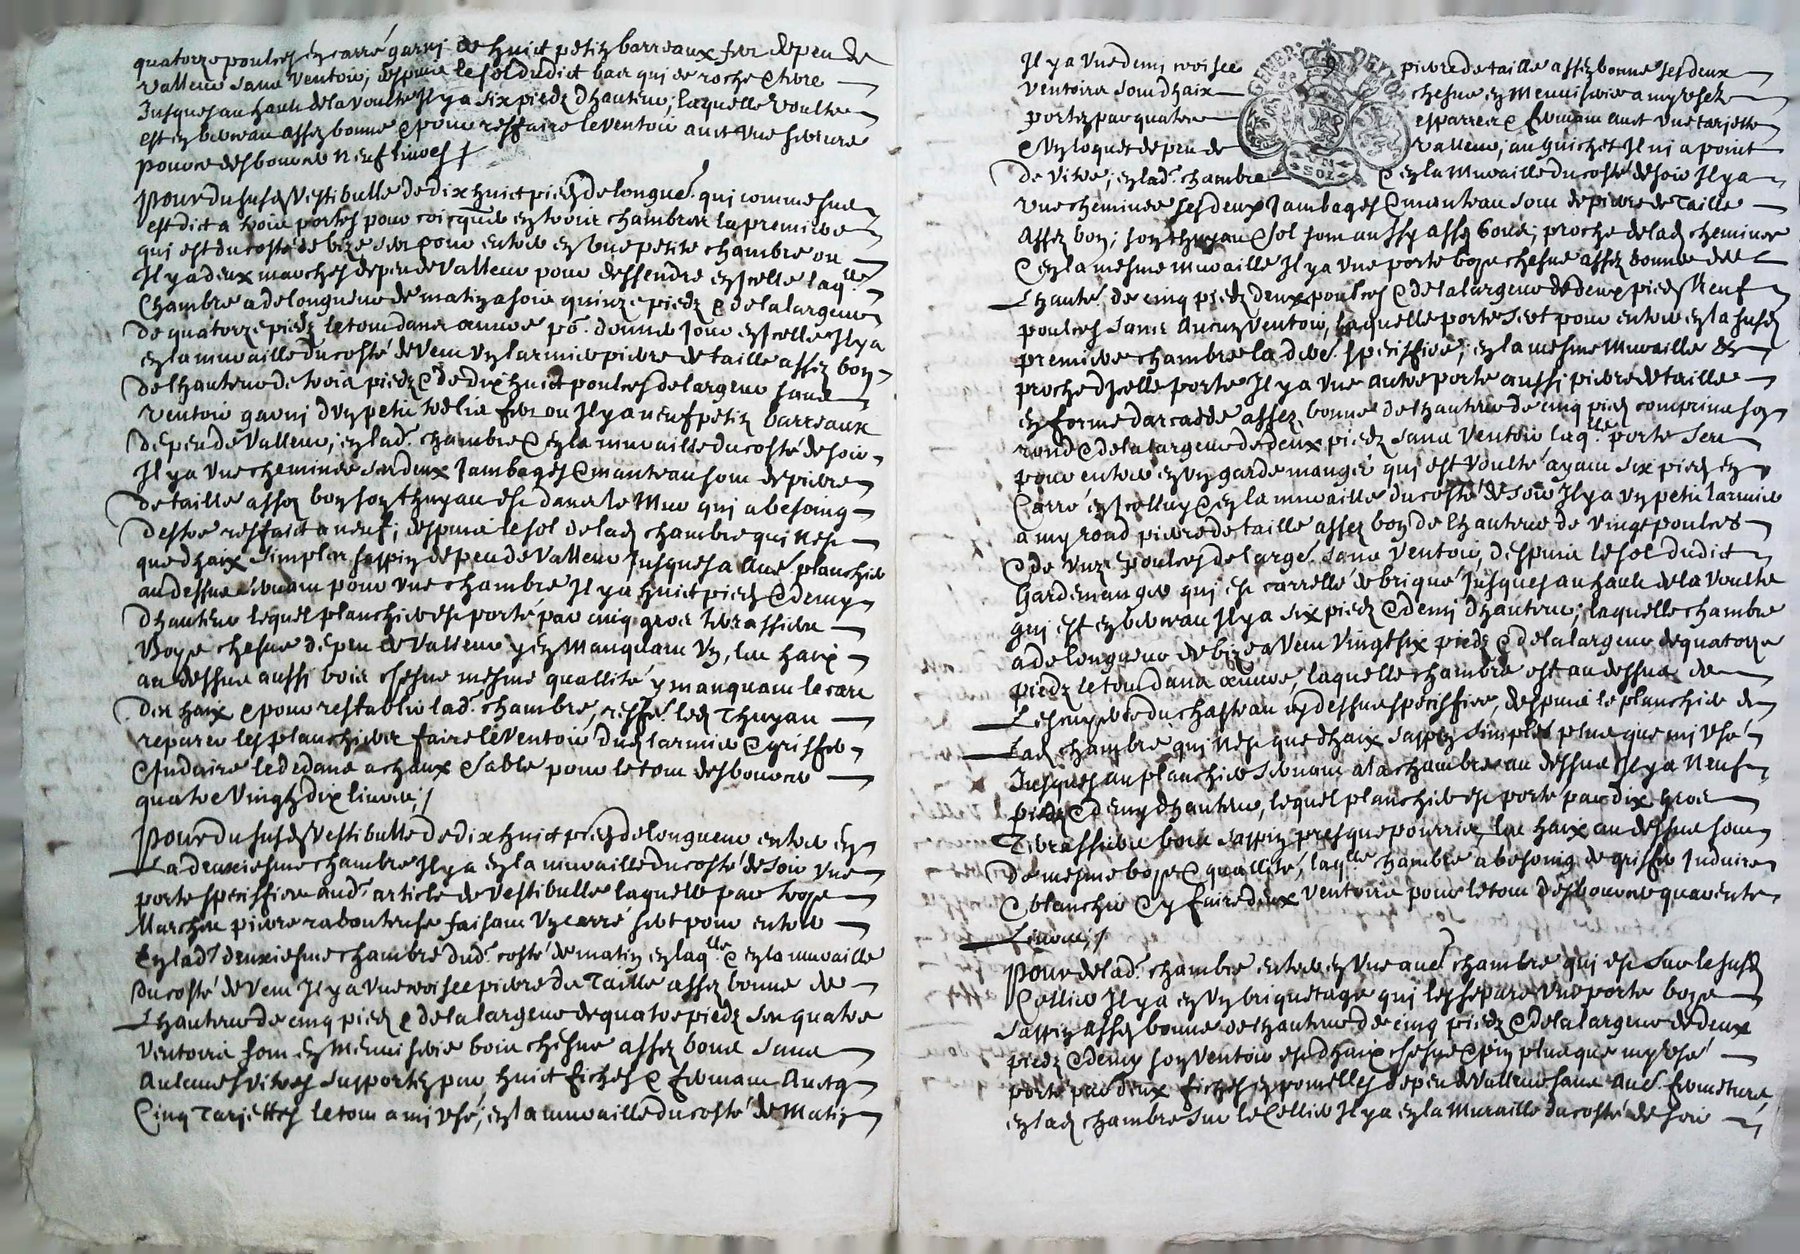 quatorze poulces en carré garny de huict petitz barreaux fer de peu de
valleur sans ventou, despuis le sol dudict bas qui est roche & terre
Jusques au hault de la voulte Il y a six piedz d'hauteur, laquelle voulte
est en berceau assez bonne & pour reffaire le ventou avec une serrure
pourroe desbource neuf livres
Pour du susd. vestibulle de dix huict piedz de longue.r qui comme sus
est dict a trois portes pour coicque en trois chambres la premiere
qui est du costé de bize sert pour entrer en une petite chambre ou
Il y a deux marches de peu de valleur pour dessendre en icelle laq.lle
Chambre a de longueur de matin a soir quinze piedz & de la largeur
de quatorze piedz le tout dans œuvre po.r donner Jour en icelle Il y a
en la muraille du costé de vent un larmier pierre de taille assez bon
de l'hauteur de trois piedz & de dix huict poulces de largeur sans
ventou garny d'un petit trelis fer ou Il y a neuf petitz barreaux
de peu de valleur; en lad. chambre & en la muraille du costé de soir
Il y a une cheminée ses deux Jambages & manteau sont de pierre
de taille assez bon son thuyau est dans le mur qui a besoing
destre reffaict a neuf; despuis le sol de lad. chambre qui n'est
que d'haix simples sappin de peu de valleur Jusques a au.e planchier
au dessus servant pour une chambre Il y a huict piedz & demy
d'hauteur lequel planchier est porté par cinq gros tirassiere
boys chesne de peu de valleur y en manquant un, les haix
au dessus aussi bois chesne mesme quallité y manquant le cart
des haix & pour restablir lad. chambre, reffe. led. Thuyau
reparer les planchier faire le ventou dud. larmier & griffer
& Induire le dedans a chaux & sable pour le tout desbource
quatre vingtz dix livres
Pour du susd. vestibulle de dix huict piedz de longueur entrer en
La deuxiesme chambre Il y a en la muraille du costé de soir une
porte speciffiee aud. article de vestibulle laquelle par troys
Marches pierre raboteuse faisant un carré sert pour entrer
En lad. deuxiesme chambre dud. costé de matin en laq.lle & en la muraille
du costé de vent Il y a une croisee pierre de Taille assez bonne de
L'hauteur de cinq piedz & de la largeur de quatre piedz ses quatre
ventoirs sont en Menuiserie bois chesne assez bons sans
Aulcunes vitres supportez par huict fiches & fermant Avecq
Cinq Tarjettes le tout a mi usé; en la muraille du costé de Matin
Il y a une demi croisee pierre de taille assez bonne ses deux
ventoirs sont d'haix chesne en Menuiserie a my usez
portez par quatre esparres & fermant avec une tarjette
& un loquet de peu de valleur, au guichet Il ni a point
de vitre; en lad. chambre & en la Muraille du costé de soir Il y a
une cheminée ses deux Jambages & manteau sont de pierre de Taille
Assez bon; son thuyau & sol sont aussy assez bons; proche de lad. cheminée
& en la mesme muraille Il y a une porte boys chesne assez bonne de
L'haute.r de cinq piedz deux poulces & de la largeur de deux piedz Neuf
poulces sans Aucun ventou, laquelle porte sert pour entrer en la susd.
premiere chambre la dere. speciffiee; en la mesme Muraille &
proche d'jcelle porte Il y a une autre porte aussi pierre de taille
en forme d'arcade assez bonne de l'hauteur de cinq piedz comprins son
rond & de la largeur de deux piedz sans ventou laq.lle porte sert
pour entrer en un garde manger qui est voulté ayant six piedz en
Carré en icelluy & en la muraille du costé de soir Il y a un petit larmier
a my rond pierre de taille assez bon de l'hauteur de vingt poulces
& de unze poulces de large.r sans ventou, despuis le sol dudict
Gardemanger qui est carrellé de brique Jusques au hault de la voulte
qui est en berceau Il y a six piedz & demi d'hauteur; laquelle chambre
a de longueur de bize a vent vingt six piedz & de la largeur de quatorze
piedz le tout dans œuvre, laquelle chambre est au dessus de
L'escuyerie du chasteau cy dessus speciffiee, despuis le planchier de
Lad. chambre qui n'est que d'haix sappin simples plus que mi usé
Jusques au planchier servant a la chambre au dessus Il y a Neuf
piedz & demy d'hauteur, lequel planchier est porté par dix gros
Tirassiere bois sappin presque pourris, les haix au dessus sont
de mesme boys & quallité, laq.lle chambre a besoing de griffer Induire
& blanchir & y faire deux ventoirs pour le tout desbource quarente
Livres
Pour de lad. chambre entrer en une au.e chambre qui est sur le susd.
Cellier Il y a en un briquetage qui les separe une porte boys
sappin assez bonne de l'hauteur de cinq piedz & de la largeur de deux
piedz & demy son ventou est d'haix chesne & pin plus que my usé
porté par deux fiches en pomelles de peu de valleur sans au.e fermeture
en lad. chambre sur le Cellier Il y a en la Muraille du costé de soir